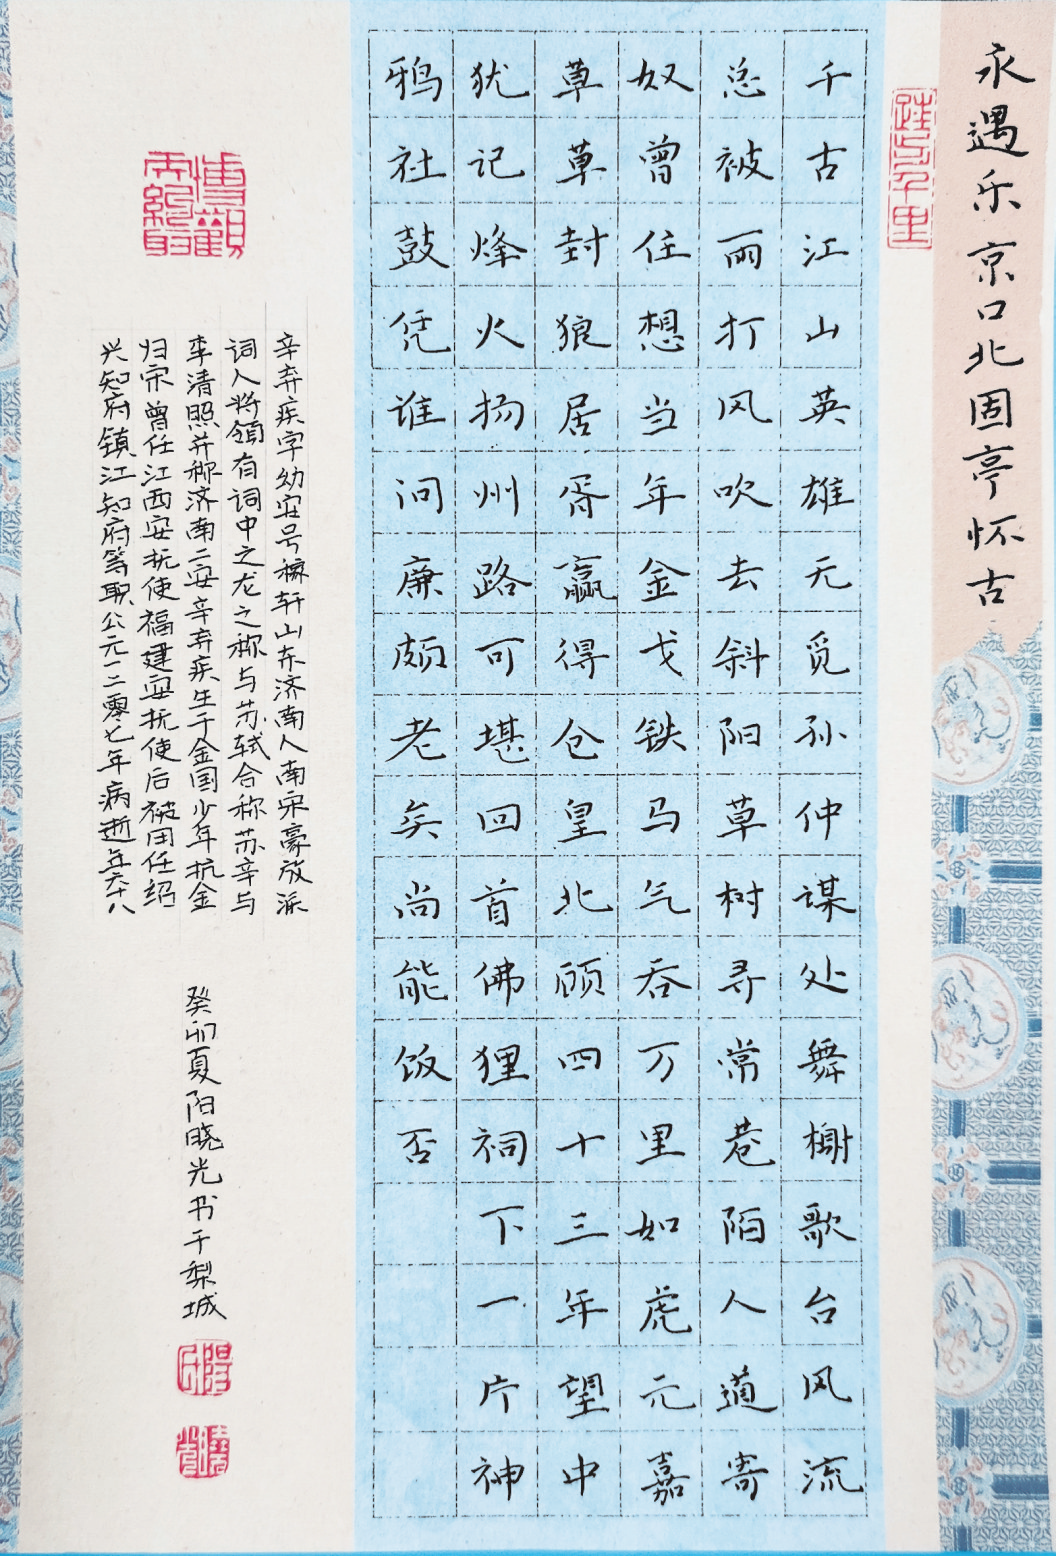 永遇乐 京口北固亭怀古
千古江山英雄无觅孙仲谋处舞榭歌台风流
总被雨打风吹去斜阳草树寻常巷陌人道寄
奴曾住想当年金戈铁马气吞万里如虎元嘉
草草封狼居胥赢得仓皇北顾四十三年望中
犹记烽火扬州路可堪回首佛狸祠下一片神
鸦社鼓凭谁问廉颇老矣尚能饭否
辛弃疾字幼安号稼轩山东济南人南宋豪放派
词人将领有词中之龙之称与苏轼合称苏辛与
李清照并称济南二安辛弃疾生于金国少年抗金
归宗曾任江西安抚使福建安抚使后被任绍
兴知府镇江知府等职公元一二零七年病逝年六十八
癸卯夏阳晓光书于梨城